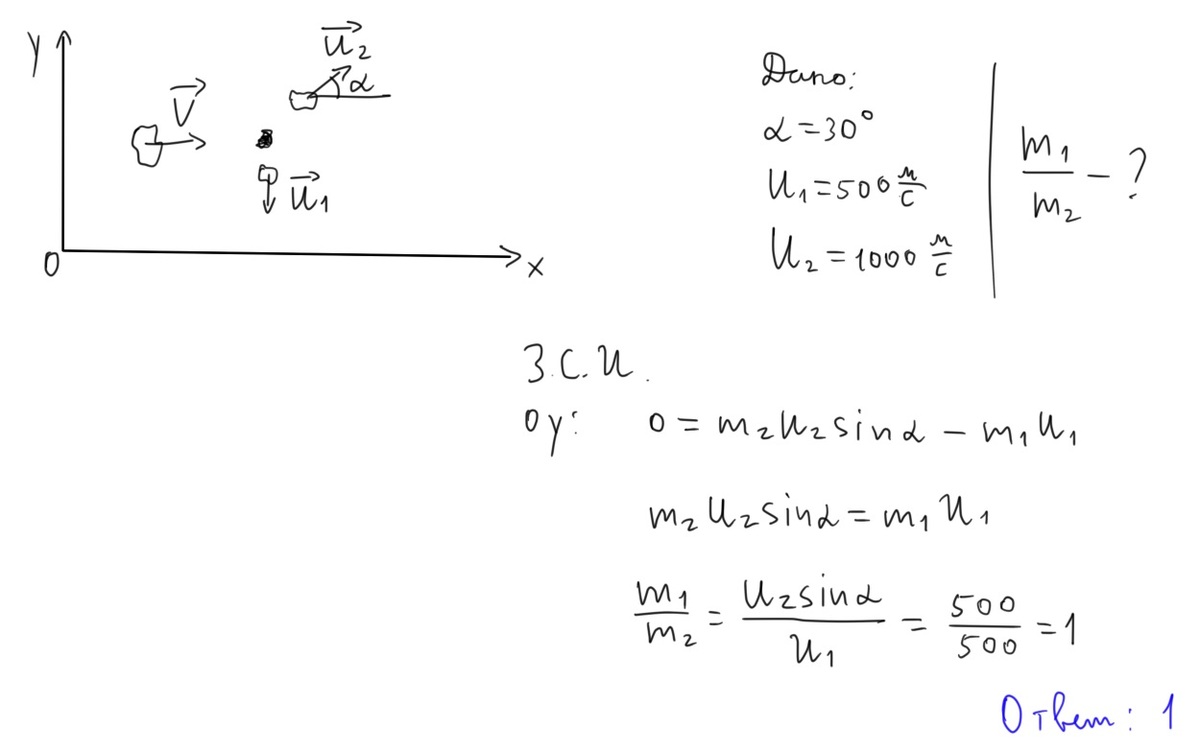 y
V
u₂
α
u₁
0
x
Дано:
α = 30°
u₁ = 500 м/с
u₂ = 1000 м/с
m₁/m₂ - ?
З.С.И.
oy: 0 = m₂u₂sinα - m₁u₁
m₂u₂sinα = m₁u₁
m₁/m₂ = u₂sinα/u₁ = 500/500 = 1
Ответ: 1